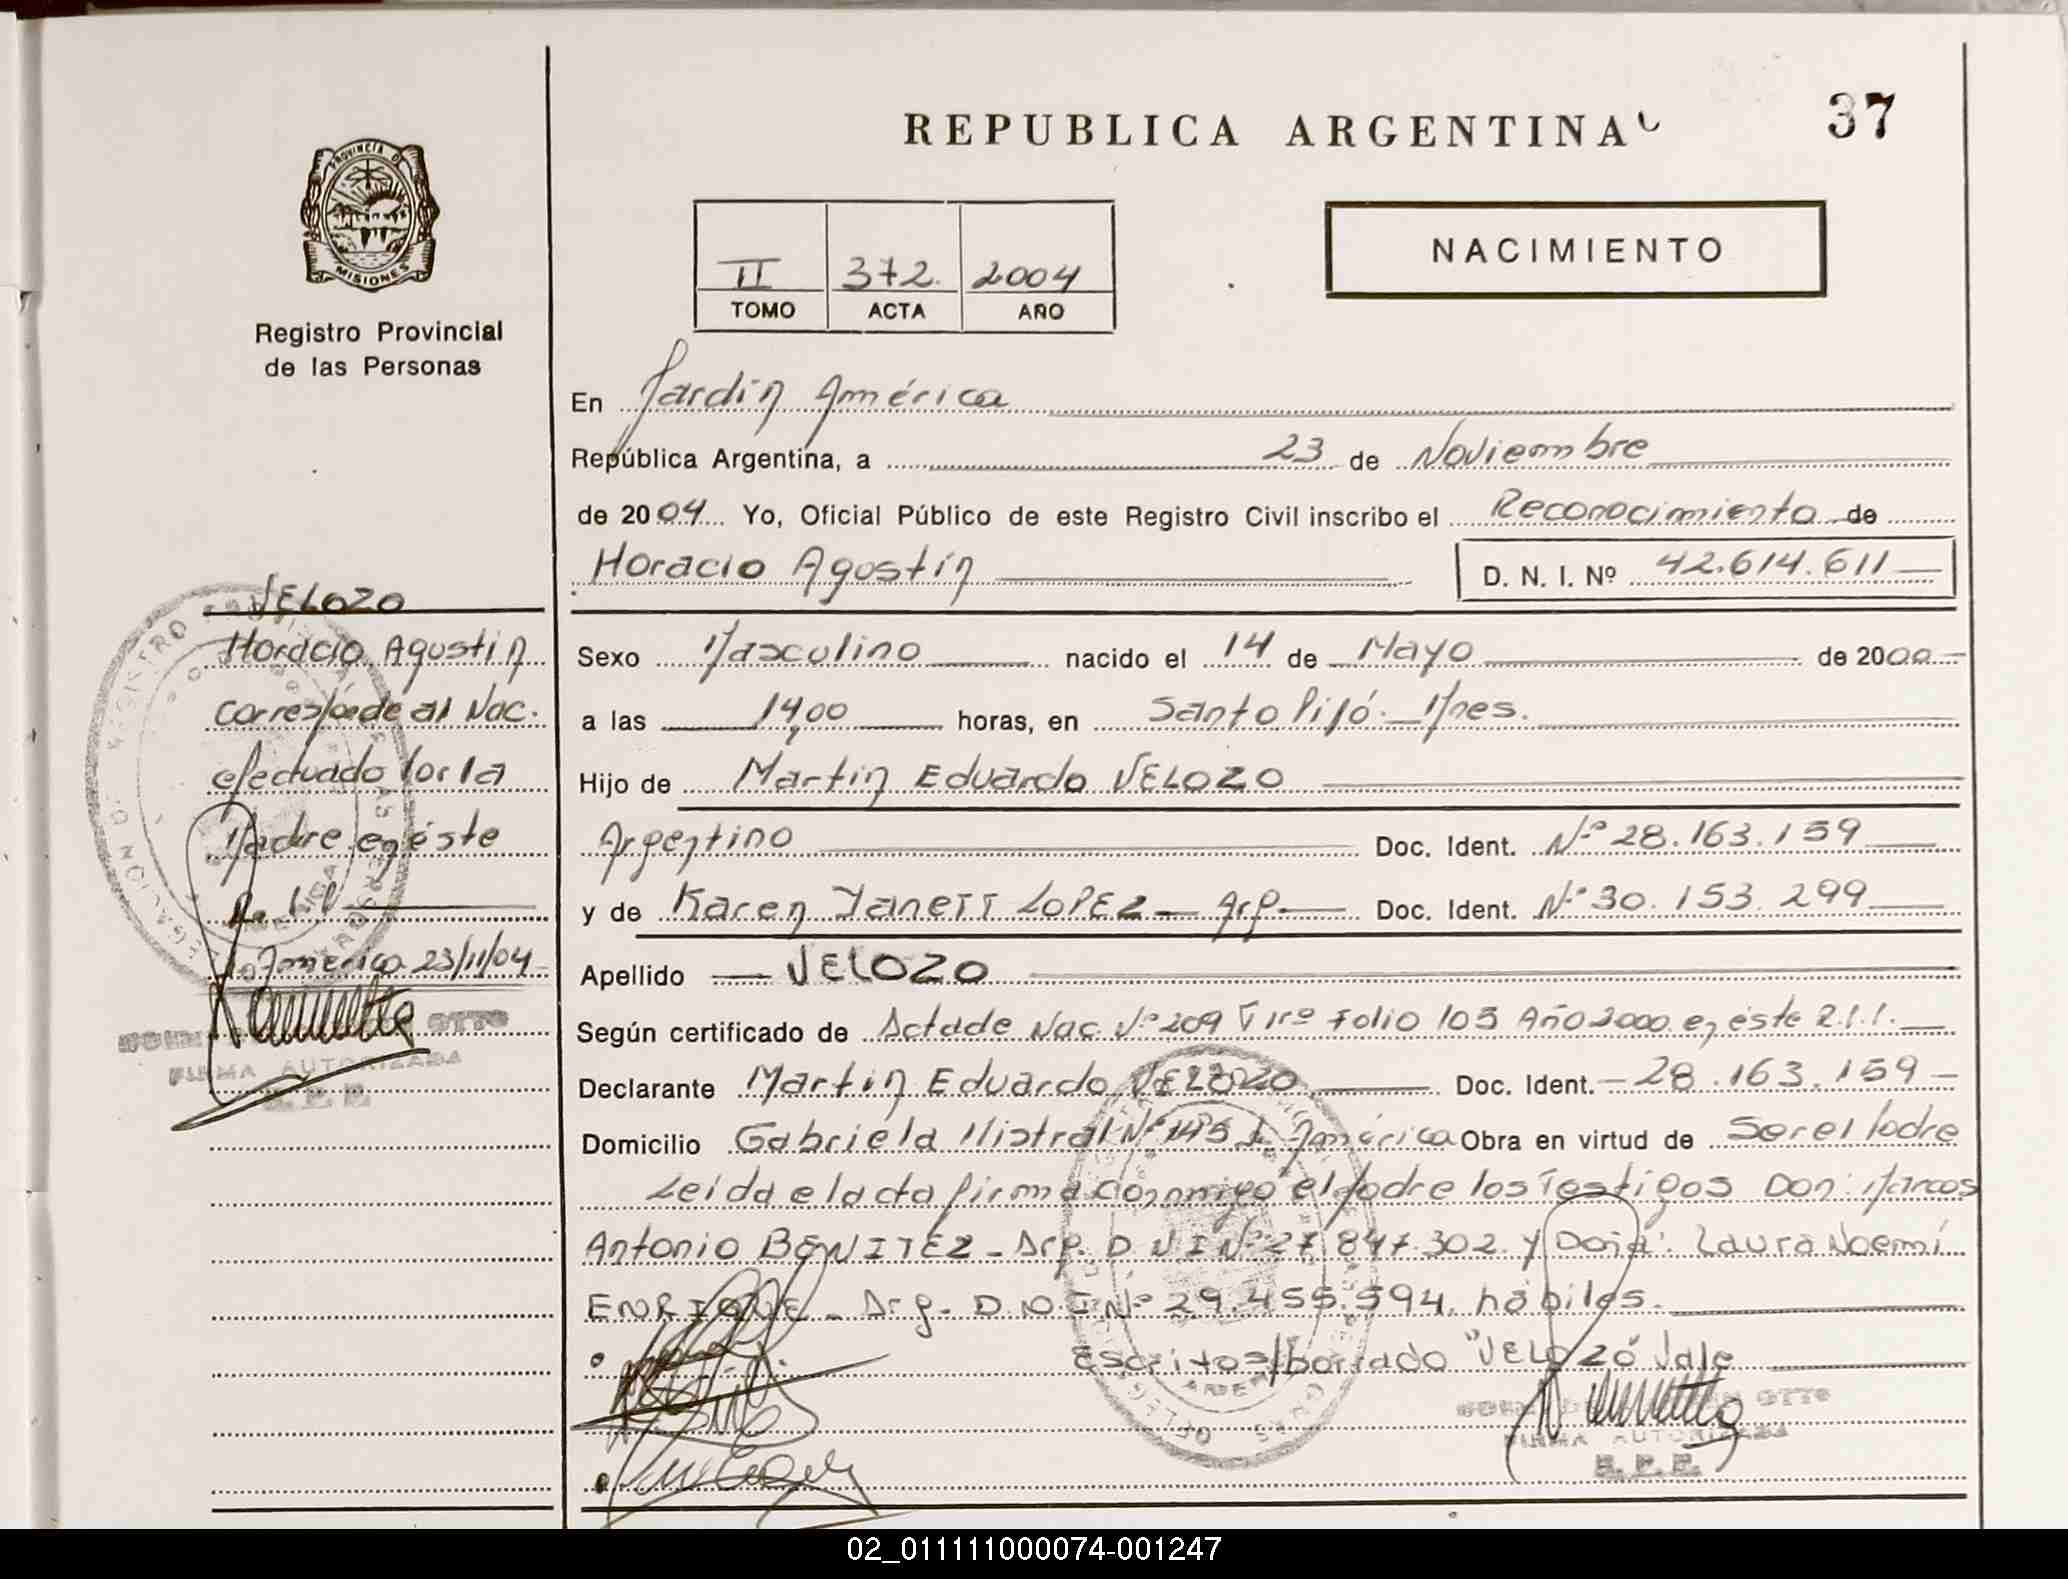 REPUBLICA ARGENTINA
37
PROVINCIA DE
MISIONES
Registro Provincial
de las Personas
II 372. 2004
TOMO ACTA AÑO
NACIMIENTO
En Jardín América
República Argentina, a 23 de Noviembre
de 2004 Yo, Oficial Público de este Registro Civil inscribo el Reconocimiento de
Horacio Agostín D. N. I. Nº 42.614.611
Sexo Masculino nacido el 14 de Mayo de 2000
a las 14,00 horas, en Santo Pipó. Mnes.
Hijo de Martin Eduardo VELOZO
Argentino Doc. Ident. Nº 28.163.159
y de Karen Yanett LOPEZ Arg. Doc. Ident. Nº 30.153.299
Apellido VELOZO
Según certificado de Acta de Nac. Nº 209 Tº Folio 105 Año 2000 en éste
Declarante Martin Eduardo VELOZO Doc. Ident. 28.163.159
Domicilio Gabriela Mistral Nº 145 J. América Obra en virtud de Ser el Padre
Leída el acta firma conmigo el padre los Testigos Don: Marcos
Antonio BENITEZ - Arg. D.N.I Nº 27.847.302 y Doña: Laura Noemí
ENRIQUE - Arg. D.N.I Nº 29.455.594. hábiles.
Escrito s/borrado "VELOZO" Vale
OTTO
FIRMA AUTORIZADA
VELOZO
Horacio Agustin
Corresponde al Nac.
efectuado por la
Madre en éste
América 23/11/04
OTTO
FIRMA AUTORIZADA
02_011111000074-001247